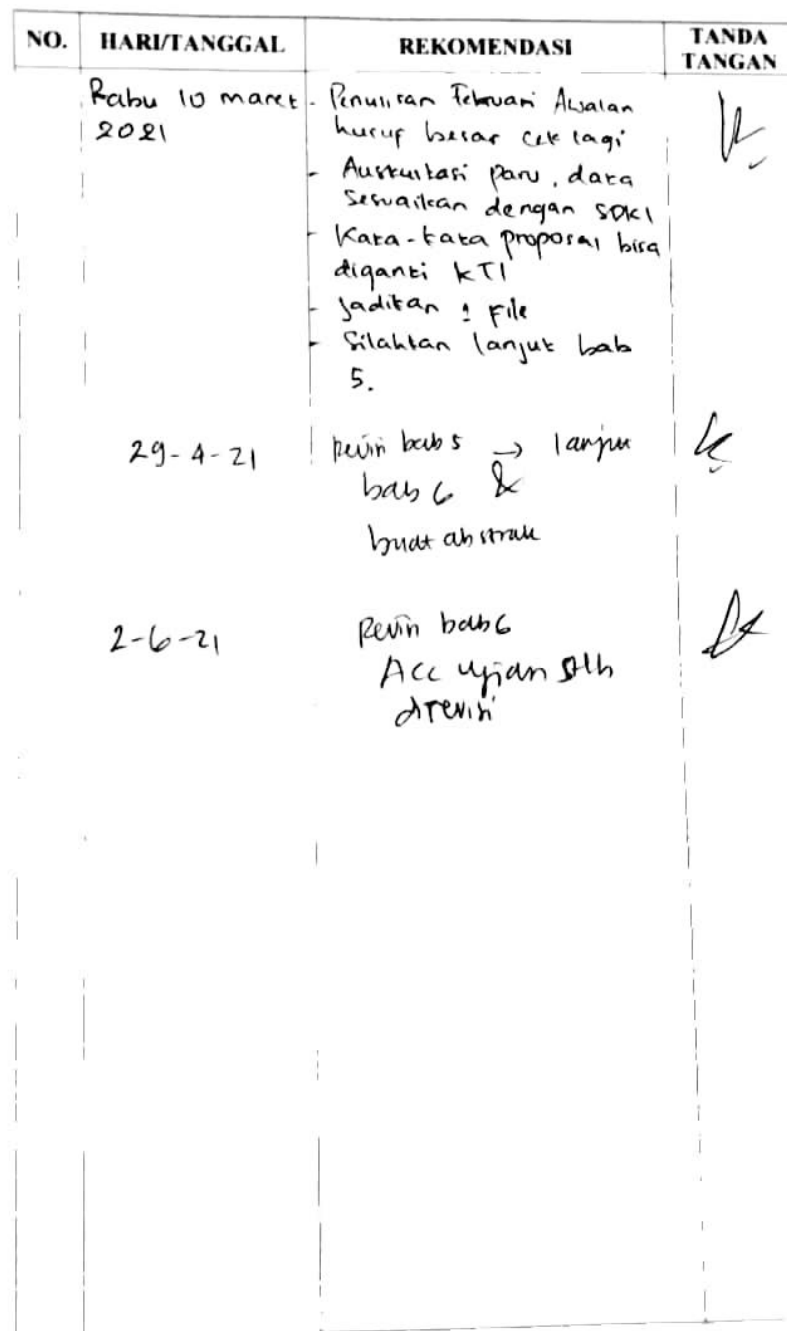 NO. HARI/TANGGAL REKOMENDASI TANDA TANGAN
Rabu 10 maret 2021
- Penulisan Februari Awalan
huruf besar cek lagi
- Auskultasi paru, data
Sesuaikan dengan SDKI
- Kata-kata proposal bisa
diganti KTI
- Jadikan 1 File
- Silahkan lanjut bab
5.
29-4-21
Revisi bab 5 → lanjut
bab 6 &
buat abstrak
2-6-21
Revisi bab 6
Acc ujian stlh
direvisi